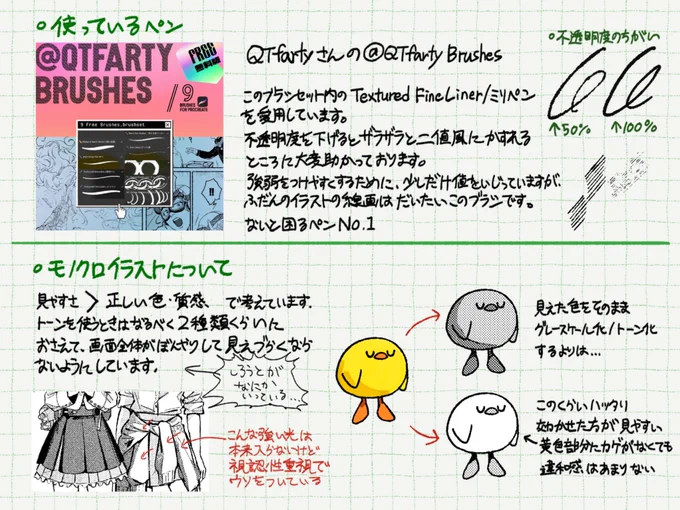 ○使っているペン
@QTFARTY
BRUSHES
FREE
無料版
/9
BRUSHES
FOR PROCREATE
Free Brushes.brushset
!!
QTfartyさんの@QTfarty Brushes
このブラシセット内のTextured FineLiner/ミリペン
を愛用しています。
不透明度を下げるとザラザラと二値風にかすれる
ところに大変助かっております。
強弱をつけやすくするために、少しだけ値をいじっていますが、
ふだんのイラストの線画はだいたいこのブラシです。
ないと困るペンNo.1
○不透明度のちがい
↑50% ↑100%
○モノクロイラストについて
見やすさ > 正しい色・質感 で考えています。
トーンを使うときはなるべく2種類くらいに
おさえて、画面全体がぼんやりして見えづらくなら
ないようにしています。
しろうとが
なにか
いっている…
こんな強い光は
本来入らないけど
視認性重視で
ウソをついている
見えた色をそのまま
グレースケール化/トーン化
するよりは…
このくらいハッキリ
わかせた方が見やすい
黄色部分にカゲがなくても
違和感はあまりない